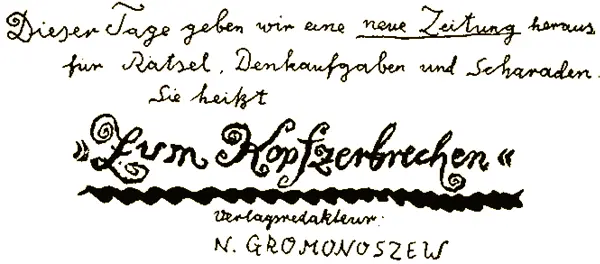 Dieser Tage geben wir eine neue Zeitung heraus
für Rätsel, Denkaufgaben und Scharaden.
Sie heißt
»Zum Kopfzerbrechen«
Verlagsredakteur:
N. GROMONOSZEW